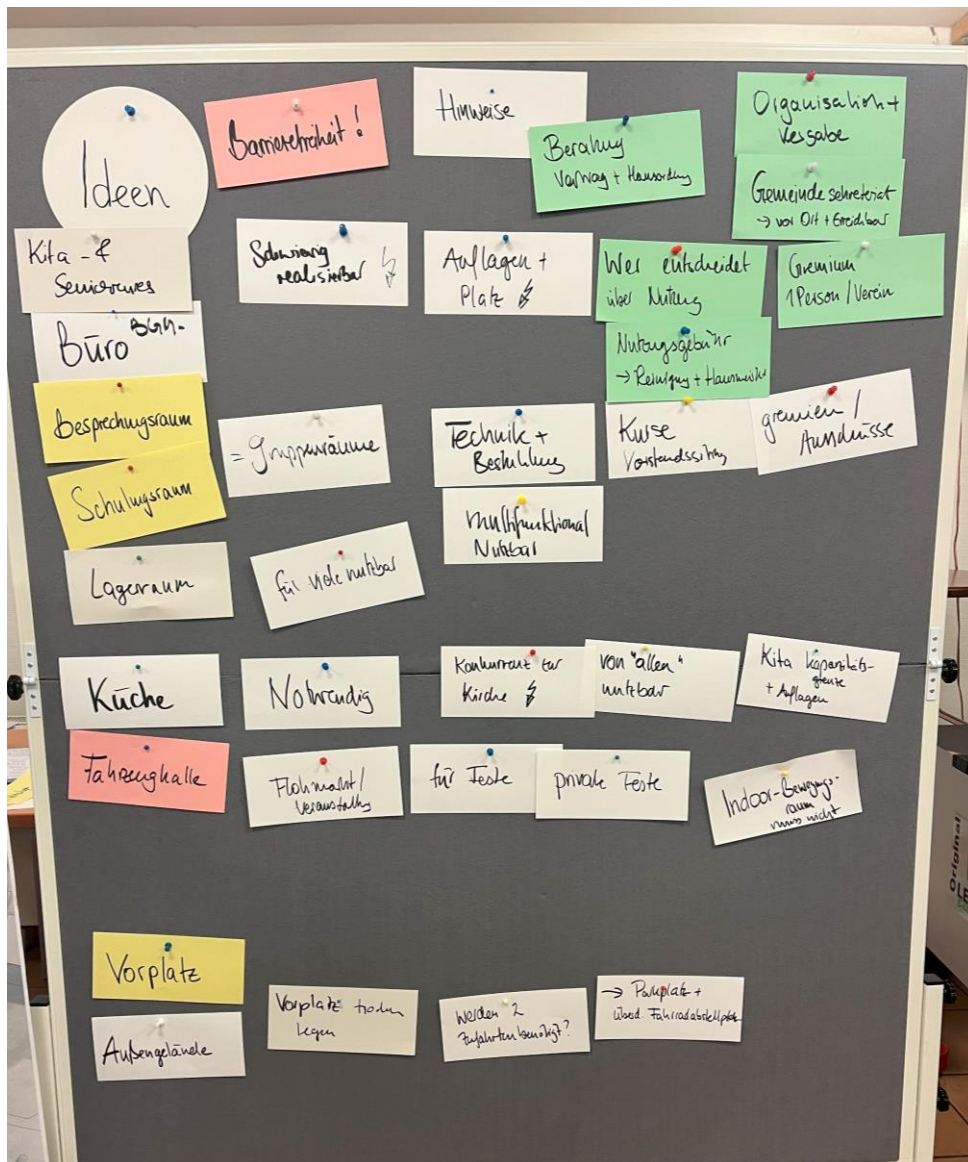 Ideen
Barrierefreiheit!
Hinweise
Beratung
Vertrag + Hausordnung
Organisation +
Vergabe
Gemeindesekretariat
→ vor Ort + Erreichbar
Kita - &
Seniorencafes
Schwierig
realisierbar
Auflagen +
Platz
Wer entscheidet
über Nutzung
Gremium
1 Person / Verein
Büro BGM-
Nutzungsgebühr
→ Reinigung + Hausmeister
Besprechungsraum
= Gruppenräume
Technik +
Bestuhlung
Kurse
Vorstandssitzung
gremien /
Ausschüsse
Schulungsraum
multifunktional
Nutzbar
Lagerraum
für viele nutzbar
Küche
Notwendig
Konkurrenz zur
Kirche
von "allen"
nutzbar
Kita Kapazitäts-
grenze
+ Auflagen
Fahrzeughalle
Flohmarkt /
Veranstaltung
für Feste
private Feste
Indoor-Bewegungs-
raum
muss nicht
Vorplatz
Außengelände
Vorplatz trocken
legen
Werden 2
Zufahrten benötigt?
→ Parkplatz +
überd. Fahrradabstellplatz
Original